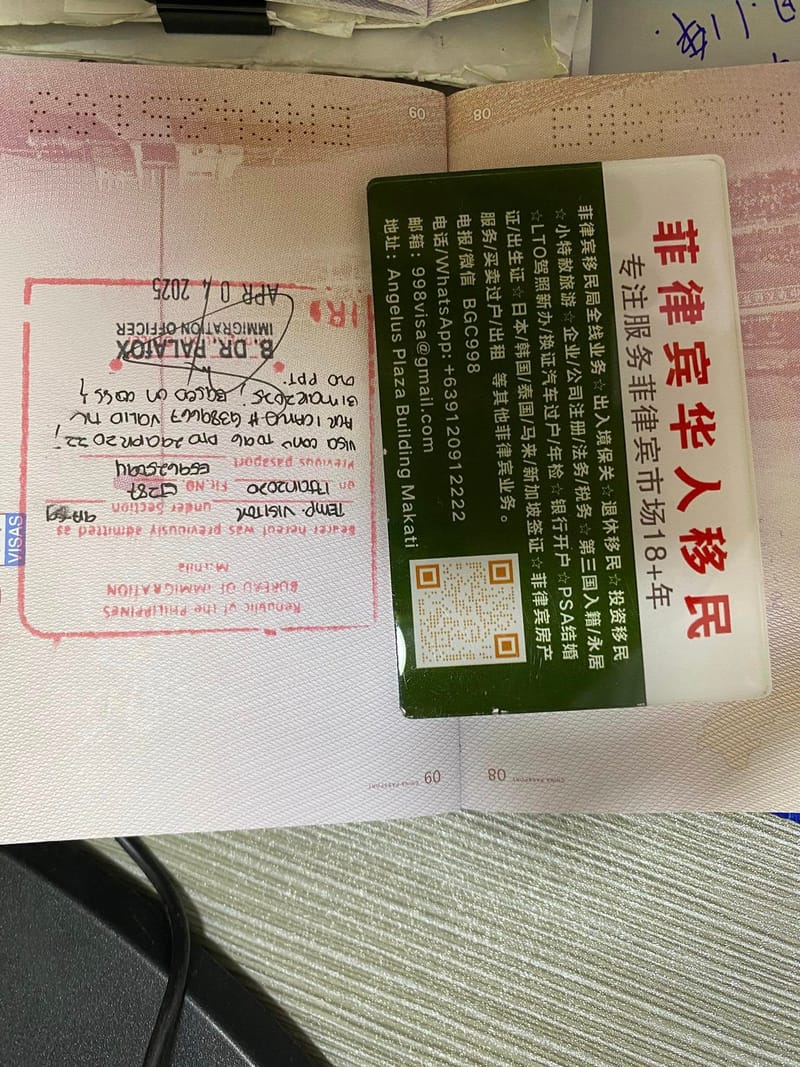 菲律宾华人移民
专注服务菲律宾市场18+年
菲律宾移民局全线业务☆出入境保关☆退休移民☆投资移民
☆小特赦旅游☆企业/公司注册/法务/税务☆第三国入籍/永居
☆LTO驾照新办/换证汽车过户/年检☆银行开户☆PSA结婚
证/出生证☆日本/韩国/泰国/马来/新加坡签证☆菲律宾房产
服务/买卖过户/出租 等其他菲律宾业务。
电报/微信 BGC998
电话/WhatsApp: +639120912222
邮箱: 998visa@gmail.com
地址: Angelus Plaza Building Makati
Republic of the PHILIPPINES
BUREAU OF IMMIGRATION
Manila
Bearer hereof was previously admitted as
TEMP. VISITOR under Section 9A
on 17JAN2020 Flt. No. 5J287
Previous passport
VISA
VALID
31MAR2025. BASED ON
PPT.
B. DR. PALAFOX
IMMIGRATION OFFICER
APR 0 4 2025
VISAS
09
08
CHINA PASSPORT 09
08 CHINA PASSPORT